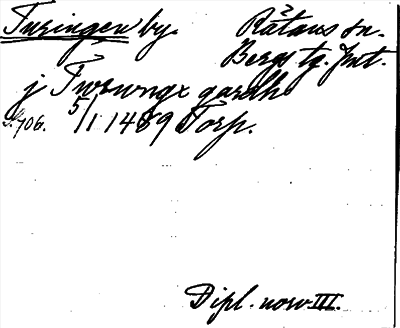 Turingen by. Rätans sn.
Bergs tg. Jmt.
j Twrungx gardh
S. 706. 5/1 1489 Torp.
Dipl. norv III.